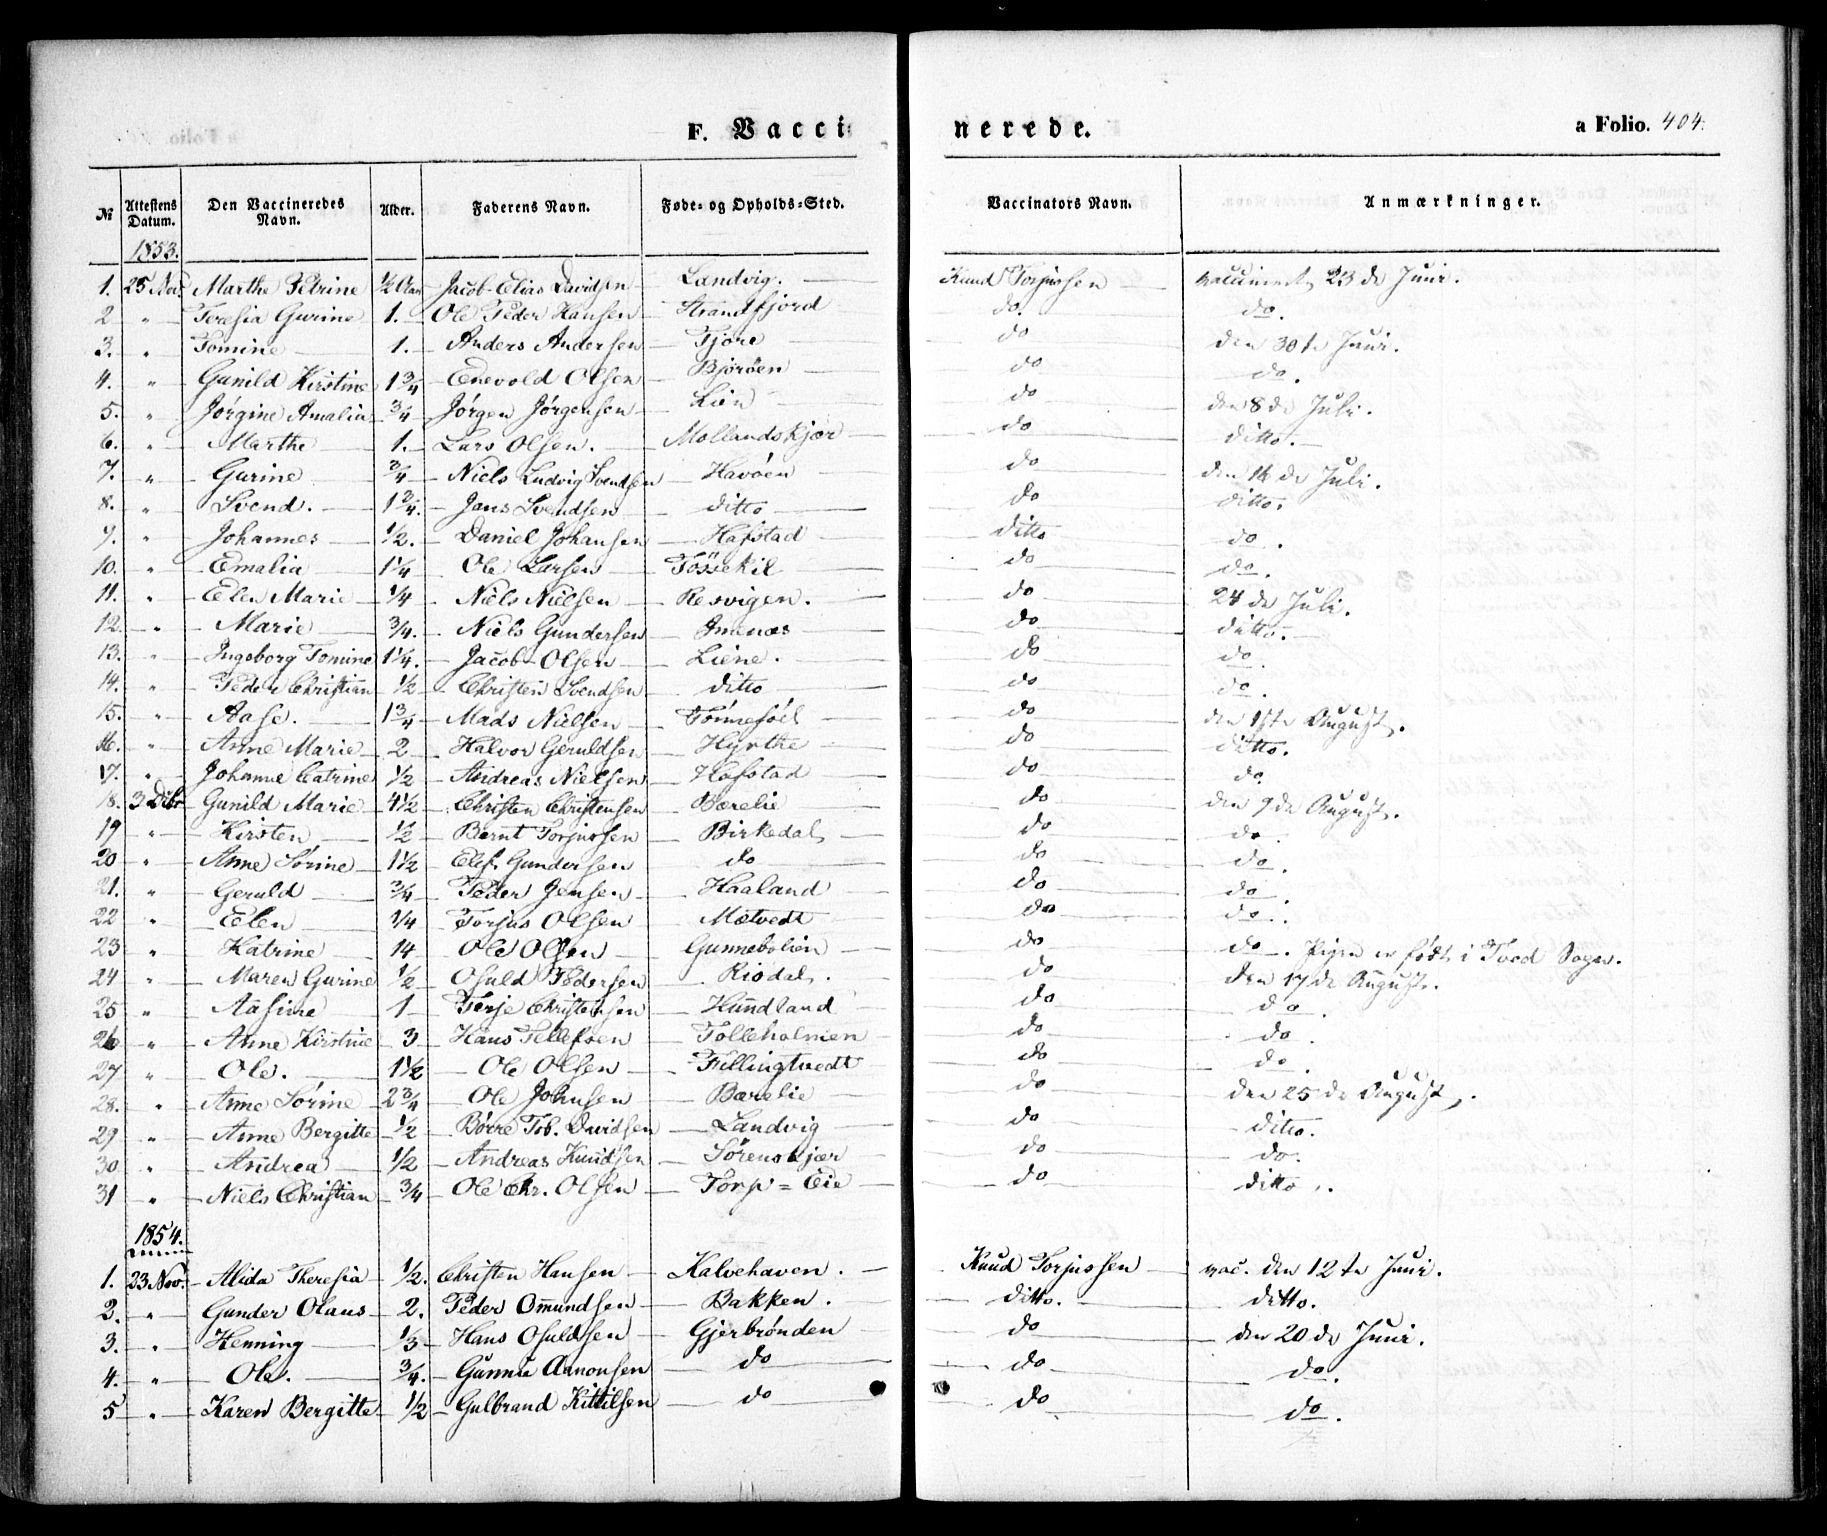 F. Vaccinerede. a Folio. 404.
№ Attestens Datum. Den Vaccineredes Navn. Alder. Faderens Navn. Føde- og Opholds-Sted. Vaccinators Navn. Anmærkninger.
1853.
1. 25 Nov. Marthe Petrine ½ Aar Jacob Elias Davidsen Landvig. Knud Torjussen vaccineret 23de Juni.
2 " Teresia Gurine 1. Ole Peder Hansen Strandfjord do do.
3. " Tomine 1. Anders Andersen Tjore do den 30te Juni.
4. " Gunild Kirstine 1¾ Enevold Olsen Bjorøen do do.
5. " Jørgine Amalia ¾ Jørgen Jørgensen Lien do den 8de Juli.
6. " Marthe 1. Lars Olsen. Mollandskjær do ditto.
7. " Gurine ¾ Niels Ludvig Svendsen Havøen do den 16de Juli.
8. " Svend. 1¾. Jans Svendsen ditto do ditto.
9. " Johannes ½. Daniel Johansen Hafstad ditto do.
10. " Emalia 1¼ Ole Larsen Tössekil do do.
11. " Elen Marie ¼ Niels Nielsen Resvigen. do 24de Juli.
12. " Marie ¾. Niels Gundersen Imenæs do ditto.
13. " Ingeborg Tomine 1¼. Jacob Olsen Liene. do do.
14. " Peder Christian ½ Christen Svendsen ditto do do.
15. " Aase. 1¾ Mads Nielsen Tønnesöel do den 1ste August.
16. " Anne Marie 2 Halvor Geruldsen Hyrthe do ditto.
17. " Johanne Catrine ½ Andreas Nielsen Hafstad do do
18. 3 Dcbr Gunild Marie 4½ Christen Christensen Bærelie do den 9de August.
19 " Kirsten ½ Bernt Torjussen Birkedal do do.
20 " Anne Sørine 1½ Elef Gundersen do do do.
21. " Geruld ¾ Peder Jensen Haaland do do.
22 " Elen ¼ Torjus Olsen Mætvedt do do.
23 " Katrine 14 Ole Olsen Gunnebolien do do. Pigen er født i Tved Sogn.
24 " Maren Gurine ½ Osuld Pedersen Risdal. do den 17de August.
25 " Aasine 1 Terje Christensen Hundland do do.
26 " Anne Kirstine 3 Hans Tellefsen Tolleholmen do do.
27 " Ole. 1½ Ole Olsen Fillingtvedt do do.
28. " Anne Sørine 2¾ Ole Johnsen Bærelie do den 25de August.
29 " Anne Bergitte ½ Børre Tob. Davidsen Landvig do ditto.
30 " Andrea ½ Andreas Knudsen Sørenskjær do do.
31 " Niels Christian ¾ Ole Chr. Olsen Torp = Eie do ditto.
1854.
1. 23 Nov. Alida Theresia ½. Christen Hansen Kalvehaven. Knud Torjussen vac. den 12te Juni.
2. " Gunder Olaus 2. Peder Omundsen Bakken. ditto. ditto.
3. " Henning ⅓ Hans Osuldsen Gjerbrønden do den 20de Juni.
4. " Ole. ¾. Gunnu Aanonsen do do do.
5 " Karen Bergitte ½ Gulbrand Kittilsen do do do.